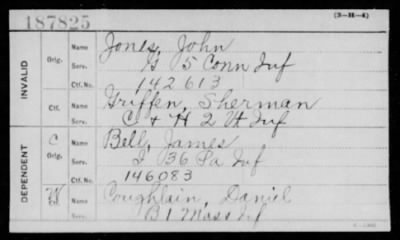 187825 (3—H—4)
INVALID
Orig. Name Jones, John
Serv. G 5 Conn Inf
Ctf. No. 142613
Ctf. Name Griffen, Sherman
Serv. C & H 2 Vt Inf
DEPENDENT
C Orig. Name Bell, James
Serv. I 36 Pa Inf
Ctf. No. 146083
W Name Coughlain, Daniel
Serv. B 1 Mass Inf